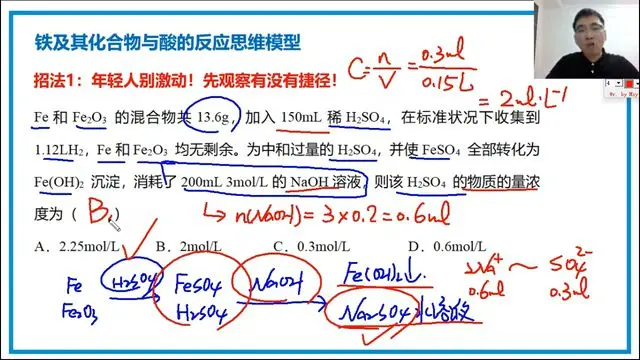 铁及其化合物与酸的反应思维模型
招法1：年轻人别激动！先观察有没有捷径！
C=n/V=0.3ml/0.15L
=2ml·L⁻¹
Fe 和 Fe₂O₃ 的混合物共 13.6g，加入 150mL 稀 H₂SO₄，在标准状况下收集到
1.12LH₂，Fe 和 Fe₂O₃ 均无剩余。为中和过量的 H₂SO₄，并使 FeSO₄ 全部转化为
Fe(OH)₂ 沉淀，消耗了 200mL 3mol/L 的 NaOH 溶液，则该 H₂SO₄ 的物质的量浓
度为（ B. ）
↳ n(NaOH)=3×0.2=0.6ml
A．2.25mol/L B．2mol/L C．0.3mol/L D．0.6mol/L
Fe H₂SO₄ FeSO₄ NaOH Fe(OH)₂↓ 2Na⁺～SO₄²⁻
Fe₂O₃ H₂SO₄ Na₂SO₄ 0.6ml 0.3ml